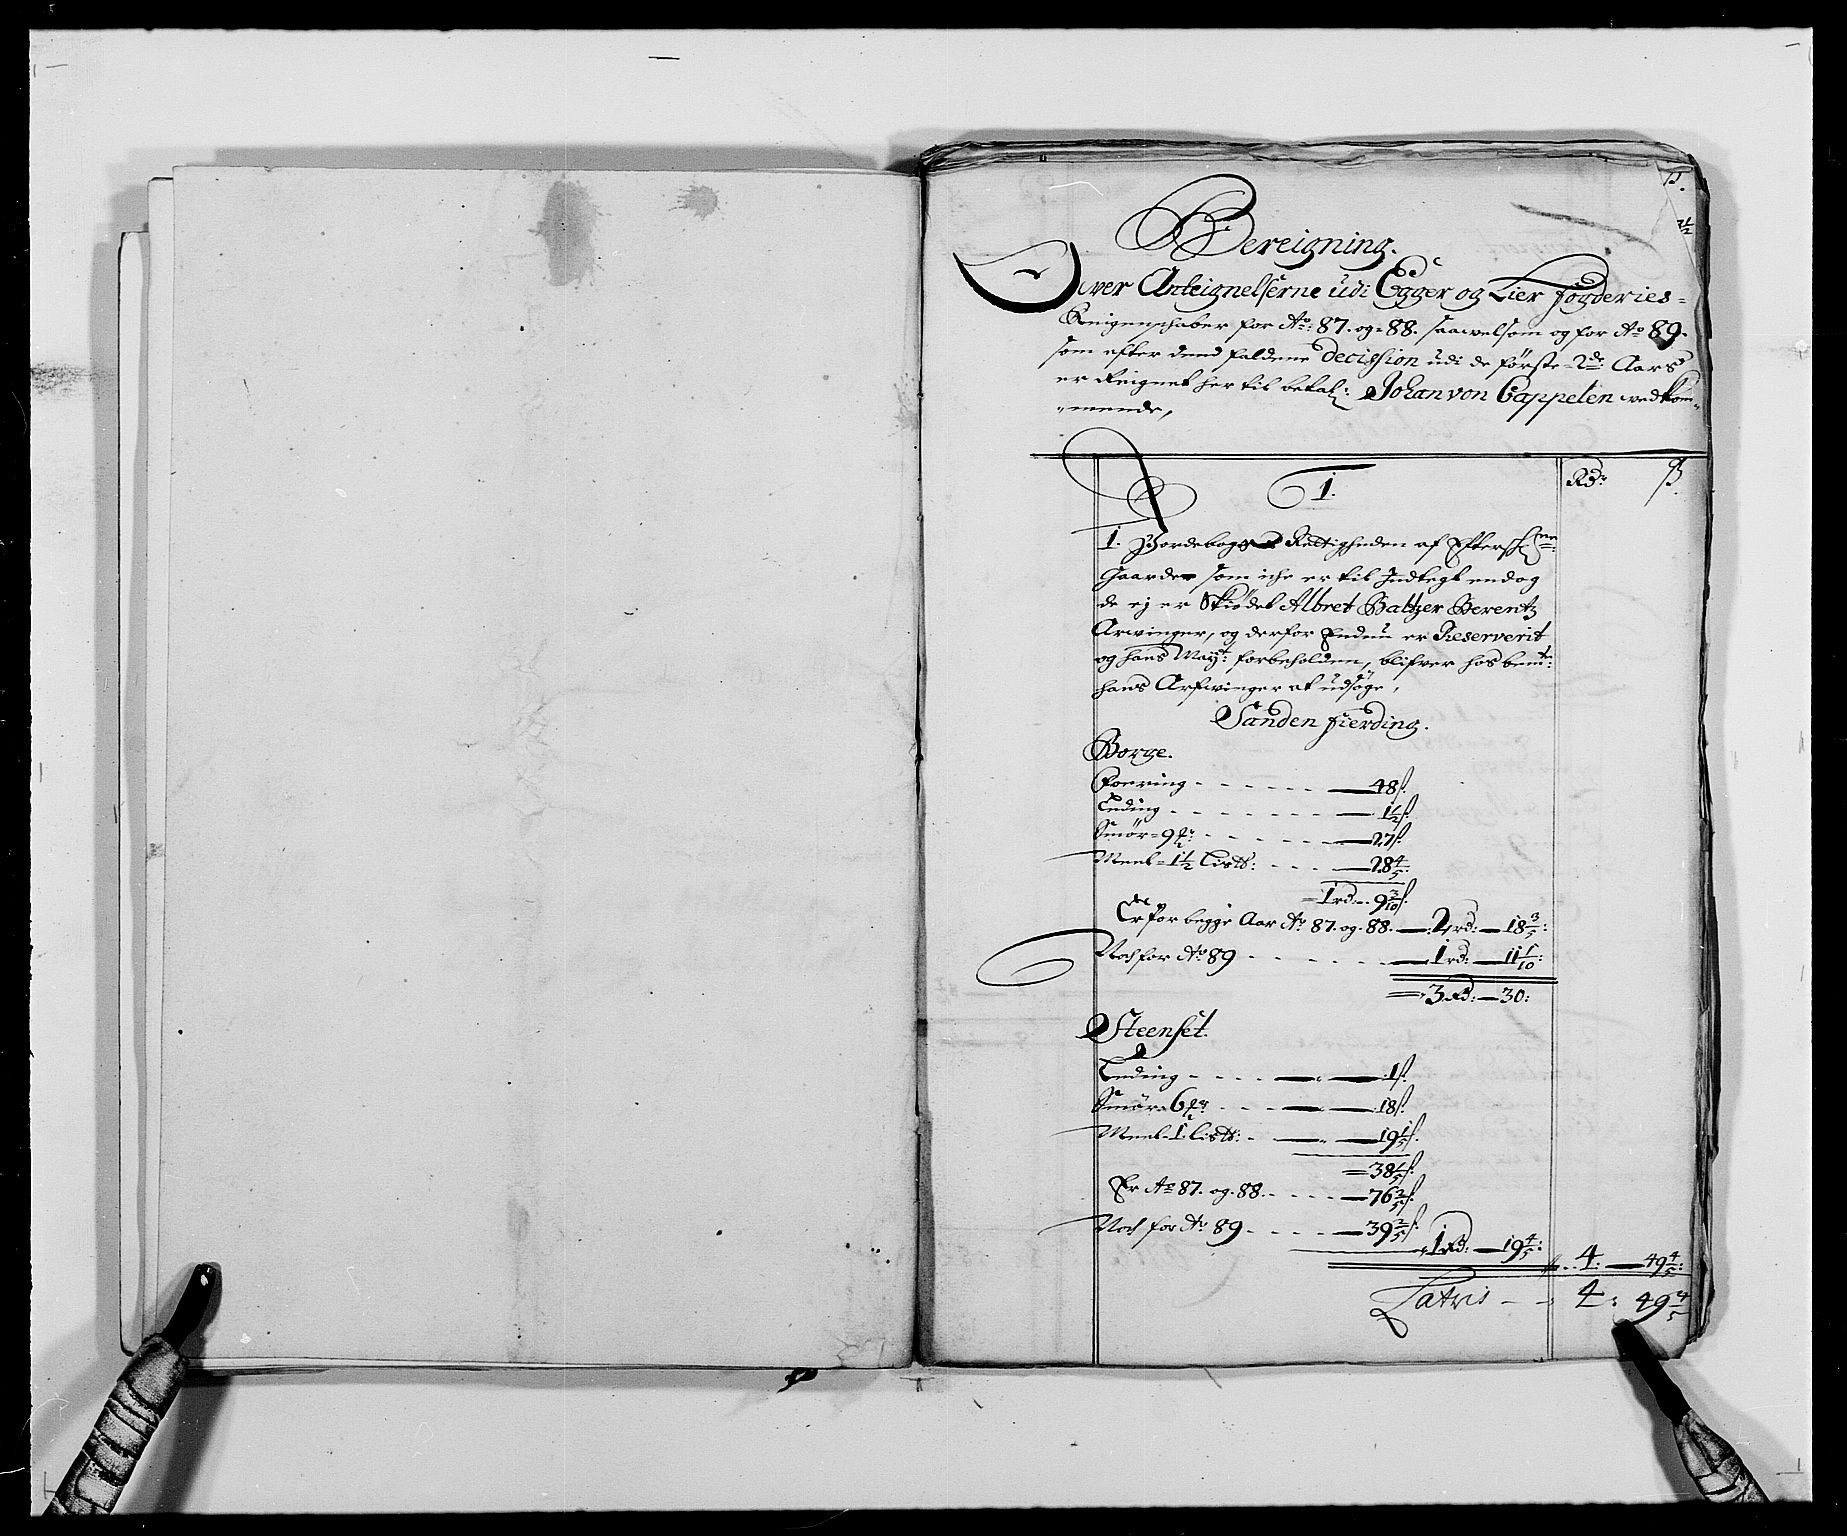 Bereigning.
Over Anteignelserne udi Egger og Lier fogderies=
Reigenschaber for Ao: 87. og 88. saavelsom og for Ao 89.
som efter dend faldene decission udi de første 2de: Aars
er Reignet her til betal: Johan von Cappelen vedkom=
=mende,
Rd: ß.
1.
1. Jordebogs Rettigheden af Efterschne:
Gaarder som iche er til Indtegt endog
de ej er Skiødet Albret Baltzer Berentz
Arwinger, og derfor Endnu er Reserverit
og hans Mayt: forbeholden, blifver hos bemte:
hans Arfwinger at udsøge,
Sanden fierding.
Borge.
Foering - - - - - - 48ß.
Leding - - - - - - - 1½ß.
Smør=9 - - - - - 27ß.
Meel=1½ Listb: - - - - 28⅘
=1rd - 9 3/10ß.
Er for begge Aar Ao 87. og 88. 2rd: 18⅗:
Noch for Ao 89 - - - - - - 1rd: 11 1/10:
=3Rd: 30:
Steenset.
Leding - - - - 1ß.
Smør=6 - - - 18ß.
Meel=1 listb: - 19⅕ß.
=38⅕ß.
Er Ao 87. og 88. - - - - 76⅖ß.
Noch for Ao 89 - - - - 39⅖ß.
1Rd: 19⅘: 4: 49⅘:
Latris - - 4: 49⅘